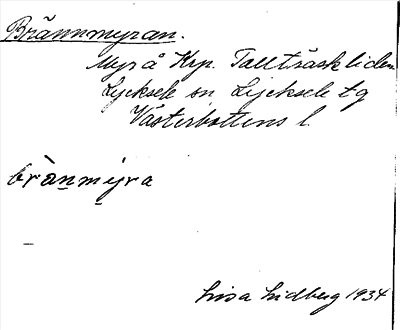 Brännmyran.
Myr å Krp. Tallträskliden
Lycksele sn Lycksele tg
Västerbottens l.
brànmyra
Lisa Lidberg 1934